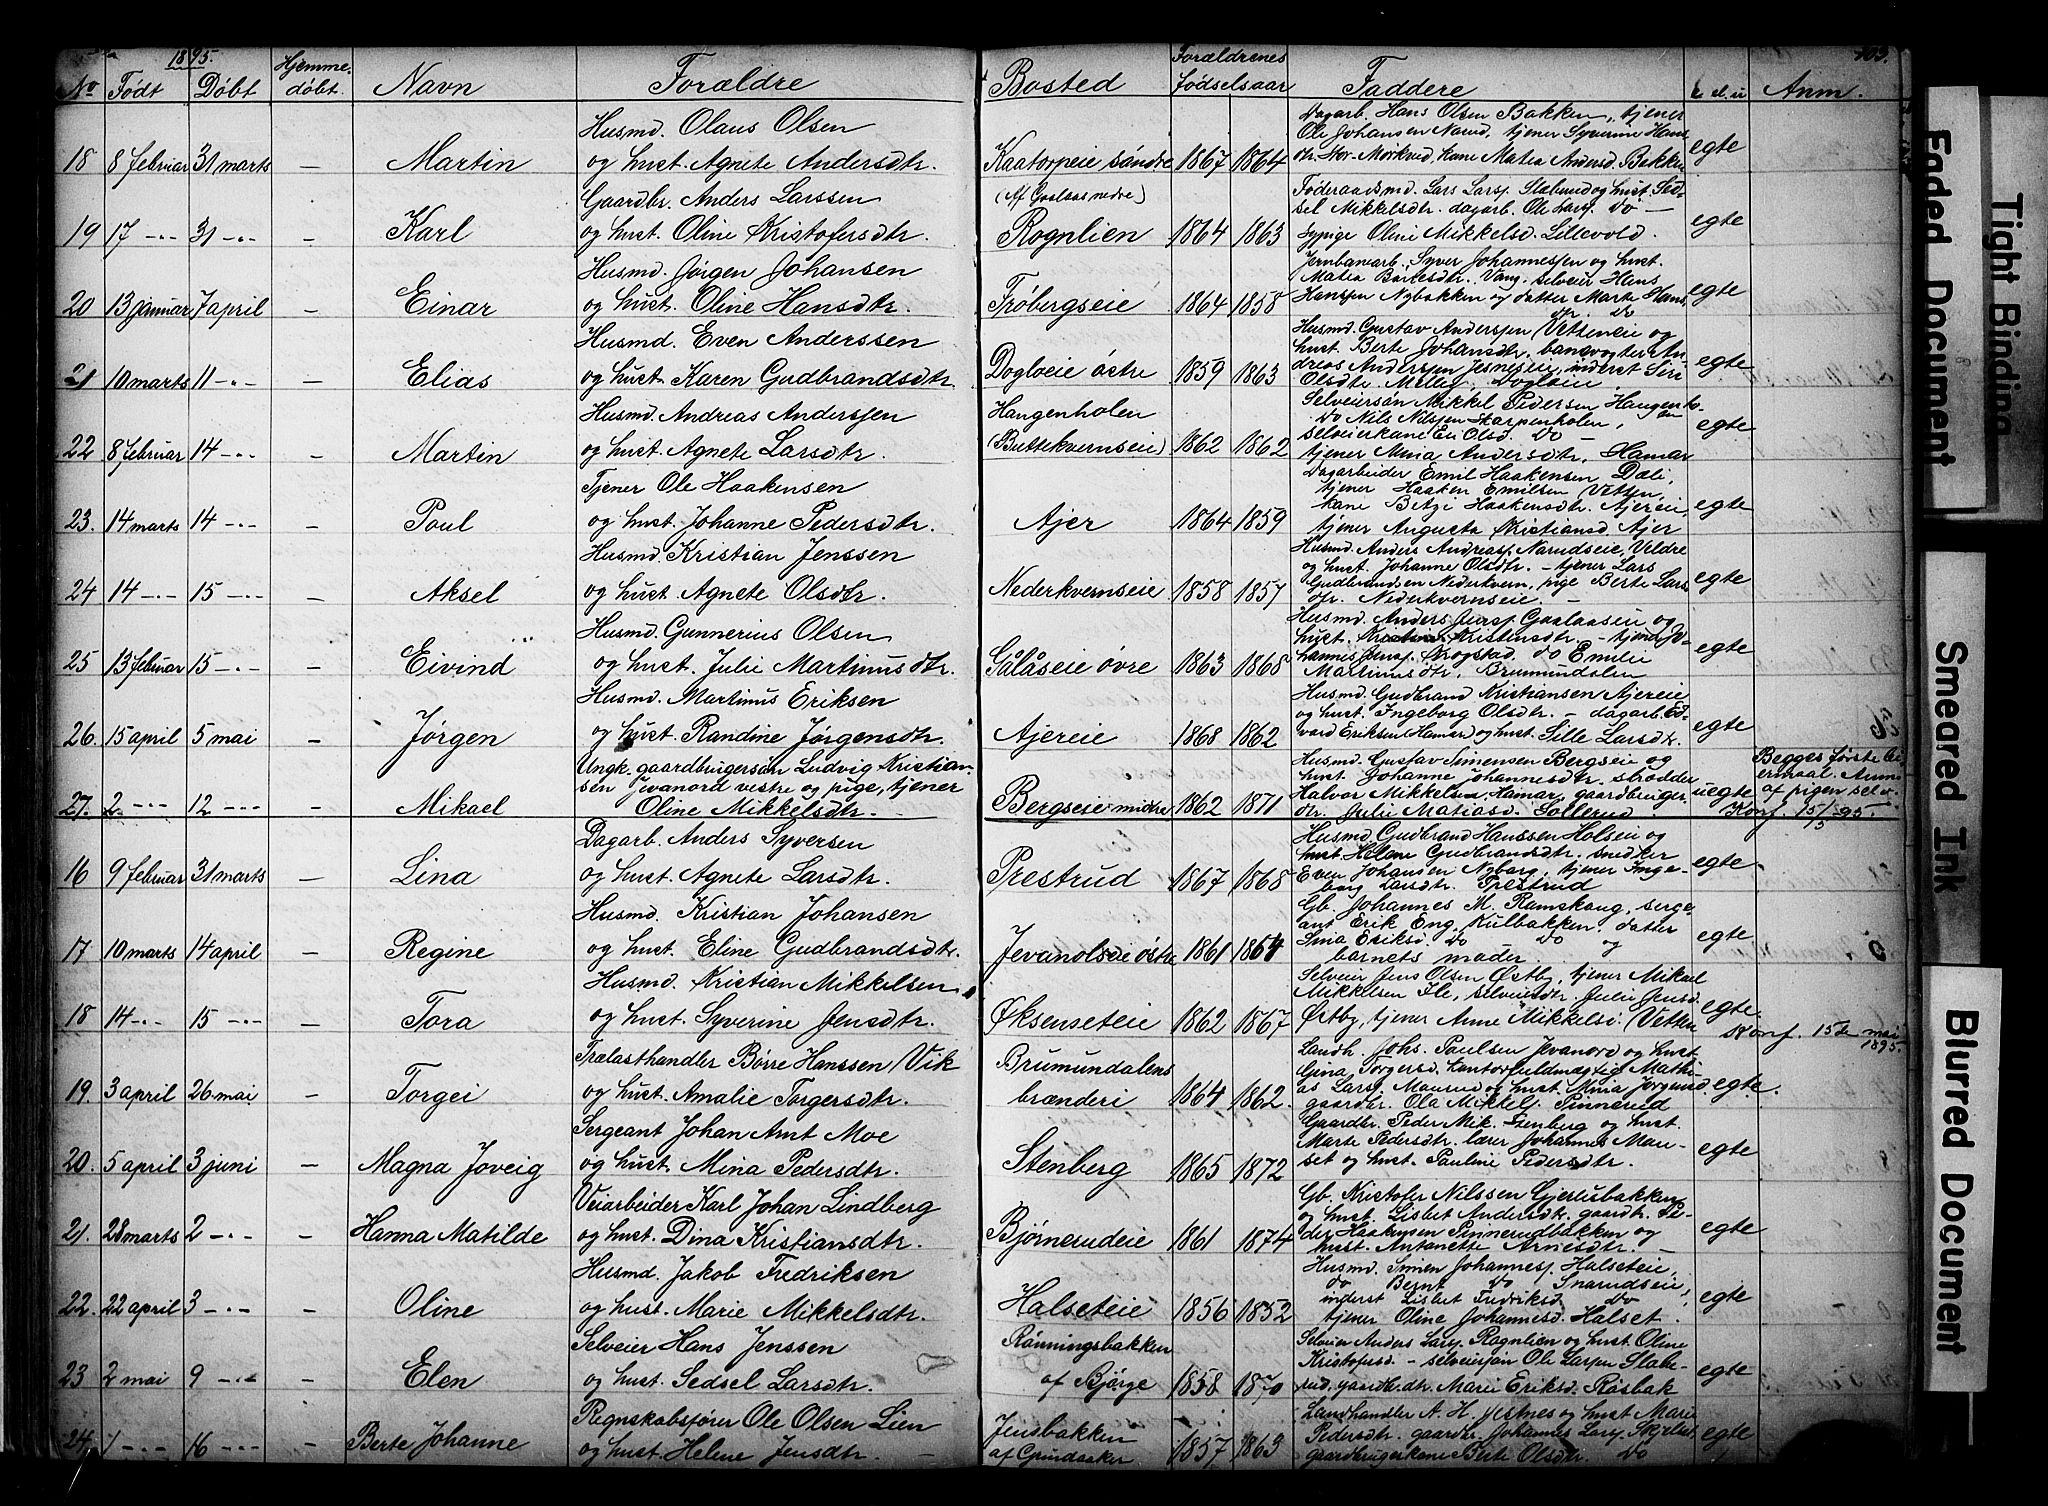 1895. 103.
No Født Døbt Hjemme-døbt. Navn Forældre Bosted Forældrenes Fødselsaar Faddere e. el. u Anm.
18 8 februar 31 marts – Martin Husmd. Olaus Olsen
og hust. Agnete Andersdtr. Kaatorpeie søndre 1867 1864 egte
Dagarb. Hans Olsen Bakken, tjener
Ole Johansen Narud, tjener Syverine Hans-
dtr. Stor-Mørkved, kone Matea Andersd. Bakken
19 17 -„- 31 -„- – Karl Gaardbr. Anders Larssen
og hust. Oline Kristofersdtr. (Af Gaalaas nedre) Rognlien 1864 1863 egte
Føderaadsmd. Lars Larsp. Slabrud og hust. Sed-
sel Mikkelsdtr. dagarb. Ole Larsp. do –
sypige Oline Mikkelsd. Lillevold.
20 13 januar 7 april – Einar Husmd. Jørgen Johansen
og hust. Oline Hansdtr. Frøbergseie 1864 1858 egte
Jernbanearb. Syver Johannessen og hust.
Matea Vang, selveier Hans
Hanssen Nybakken og datter Marte Hans-
dtr. do
21 10 marts 11 -„- – Elias Husmd. Even Anderssen
og hust. Karen Gudbrandsdtr. Dogloeie østre 1859 1863 egte
Husmd. Gustav Anderssen Vetteneie og
hust. Berte Johansdtr. banevogter An-
dreas Anderssen Jesneseie, inderst Siri
Olsdtr. Dogloeie.
22 8 februar 14 -„- – Martin Husmd. Andreas Anderssen
og hust. Agnete Larsdtr. Haugenholen
(Buttekvernseie) 1862 1862 egte
Selveiersøn Mikkel Pedersen Haugenho-
do Nils Nilssen Skarpenholen,
selveierkone Eli Olsd. do –
tjener Mina Andersdtr. Hamar
23. 14 marts 14 -„- – Poul Tjener Ole Haakensen
og hust. Johanne Pedersdtr. Ajer 1864 1859 egte
Dagarbeider Emil Haakensen Dæli,
tjener Haaken Emilsen Vetten,
kone Haakensdtr. Ajereie,
tjener Augusta Kristiansd. Ajer
24 14 -„- 15 -„- – Aksel Husmd. Kristian Jenssen
og hust. Agnete Olsdtr. Nederkvernseie 1858 1857 egte
Husmd. Anders Andreasp. Narudseie, Veldre
og hust. Johanne Olsdtr. – tjener Lars
Gudbrandsen Nederkvern, pige Berte Lars-
dtr. Nederkvernseie –
25 13 februar 15 -„- – Eivind Husmd. Gunnerius Olsen
og hust. Julie Martinusdtr. Gålåseie øvre 1863 1868 egte
Husmd. Anders Jensp. Gaalaaseie og
hust. Kristensdtr. – tjener Jo-
hannes Jensp. Krogstad, do Emilie
Martinusdtr. Brumunddalen
26. 15 april 5 mai – Jørgen Husmd. Martinus Eriksen
og hust. Randine Jørgensdtr. Ajereie 1868 1862 egte
Husmd. Gudbrand Kristiansen Ajereie
og hust. Ingeborg Olsdtr. – dagarb. Ed-
vard Eriksen Hamar og hust. Sille Larsdtr.
27. 2 -„- 12 -„- – Mikael Ungk. gaardbrugersøn Ludvig Kristian-
sen Jevanord vestre og pige, tjener
Oline Mikkelsdtr. Bergseie midtre 1862 1871 uegte
Husmd. Gustav Simensen Bergseie og
hust. Johanne Johannesdtr. skrædder
Halvor Mikkelsen Hamar, gaardbruger-
dtr. Julie Matiasd. Sollerud.
Begges første lei-
ermaal. Anm.
af pigen selv.
Konf. 15/5 95.
16 9 februar 31 marts – Lina Dagarb. Anders Syversen
og hust. Agnete Larsdtr. Prestrud 1867 1868 egte
Husmd. Gudbrand Hanssen Holseie og
hust. Helene Gudbrandsdtr. snedker
Even Johansen Nyborg, tjener Inge-
borg Larsdtr. Prestrud
17 10 marts 14 april – Regine Husmd. Kristian Johansen
og hust. Eline Gudbrandsdtr. Jevanolseie østre 1861 1864 egte
Gb. Johannes M. Ramskaug, serge-
ant Erik Eng. Kulbakken, datter
Lina Eriksd. do do og
barnets moder.
18 14 -„- 15 -„- – Tora Husmd. Kristian Mikkelsen
og hust. Syverine Jensdtr. Øksenseteie 1862 1867 egte
Selveier Jens Olsen Østby, tjener Mikael
Mikkelsen Ile, selveierdtr. Julie Jensd.
Østby, tjener Anne Mikkelsd. Vetten
Konf. 15de mai 1895.
19. 3 april 26 mai – Torgei Trælasthandler Børre Hanssen Vik
og hust. Amalie Torgersdtr. Brumundalens
brænderi 1864 1862. egte.
Landh. Johs. Paulsen Jevanord og hust.
Gina Torgersd. kontorfuldmægtig Mathi-
as Larsp. Maurud og hust. Mina Jørgensd.
gaardbr. Ola Mikkelp. Pinnerud
20. 5 april 3 juni – Magna Joveig Sergeant Johan Arnt Moe
og hust. Mina Pedersdtr. Stenberg 1865 1872 egte
Gaardbr. Peder Mik. Stenberg og hust.
Marte Pedersdtr. lærer Johannes Mau-
set og hust. Pauline Pedersdtr.
21. 28 marts 2 -„- – Hanna Matilde Veiarbeider Karl Johan Lindberg
og hust. Dina Kristiansdtr. Bjørnerudeie 1861 1874 egte
Gb. Kristofer Nilssen Gjerlusbakken
og hust. Lisbet Andersdtr. gaardbr. Pe-
der Haakensen Pinnerudbakken og
hust. Antonette Arnesdtr. –
22. 22 april 3 -„- – Oline Husmd. Jakob Fredriksen
og hust. Marie Mikkelsdtr. Halseteie 1856 1852 egte
Husmd. Simen Johannesp. Halseteie,
do Bernt do Snarudseie,
inderst Lisbet Fredriksd. do
tjener Oline Johannesd. Halset.
23 2 mai 9 -„- – Elen Selveier Hans Jenssen
og hust. Sedsel Larsdtr. Rønningsbakken
af Bjørge 1858 1870 egte
Selveier Anders Larsp. Rognlien og hust. Oline
Kristofersd. – selveiersøn Ole Larsen Slabe-
rud, gaardb. dtr. Marie Eriksd. Røsbak
24. 1 -„- 16 -„- – Berte Johanne Regnskabsfører Ole Olsen Lien
og hust. Helene Jensdtr. – Jensbakken
af Grundaaker 1857 1863 egte
Landhandler A. H. Jesnes og hust. Marie
Pedersdtr. gaardbr. Johannes Larsp. Skjelset
gaardbrugerkone Berte Olsdtr. do
Faded Document
Tight Binding
Smeared Ink
Blurred Document